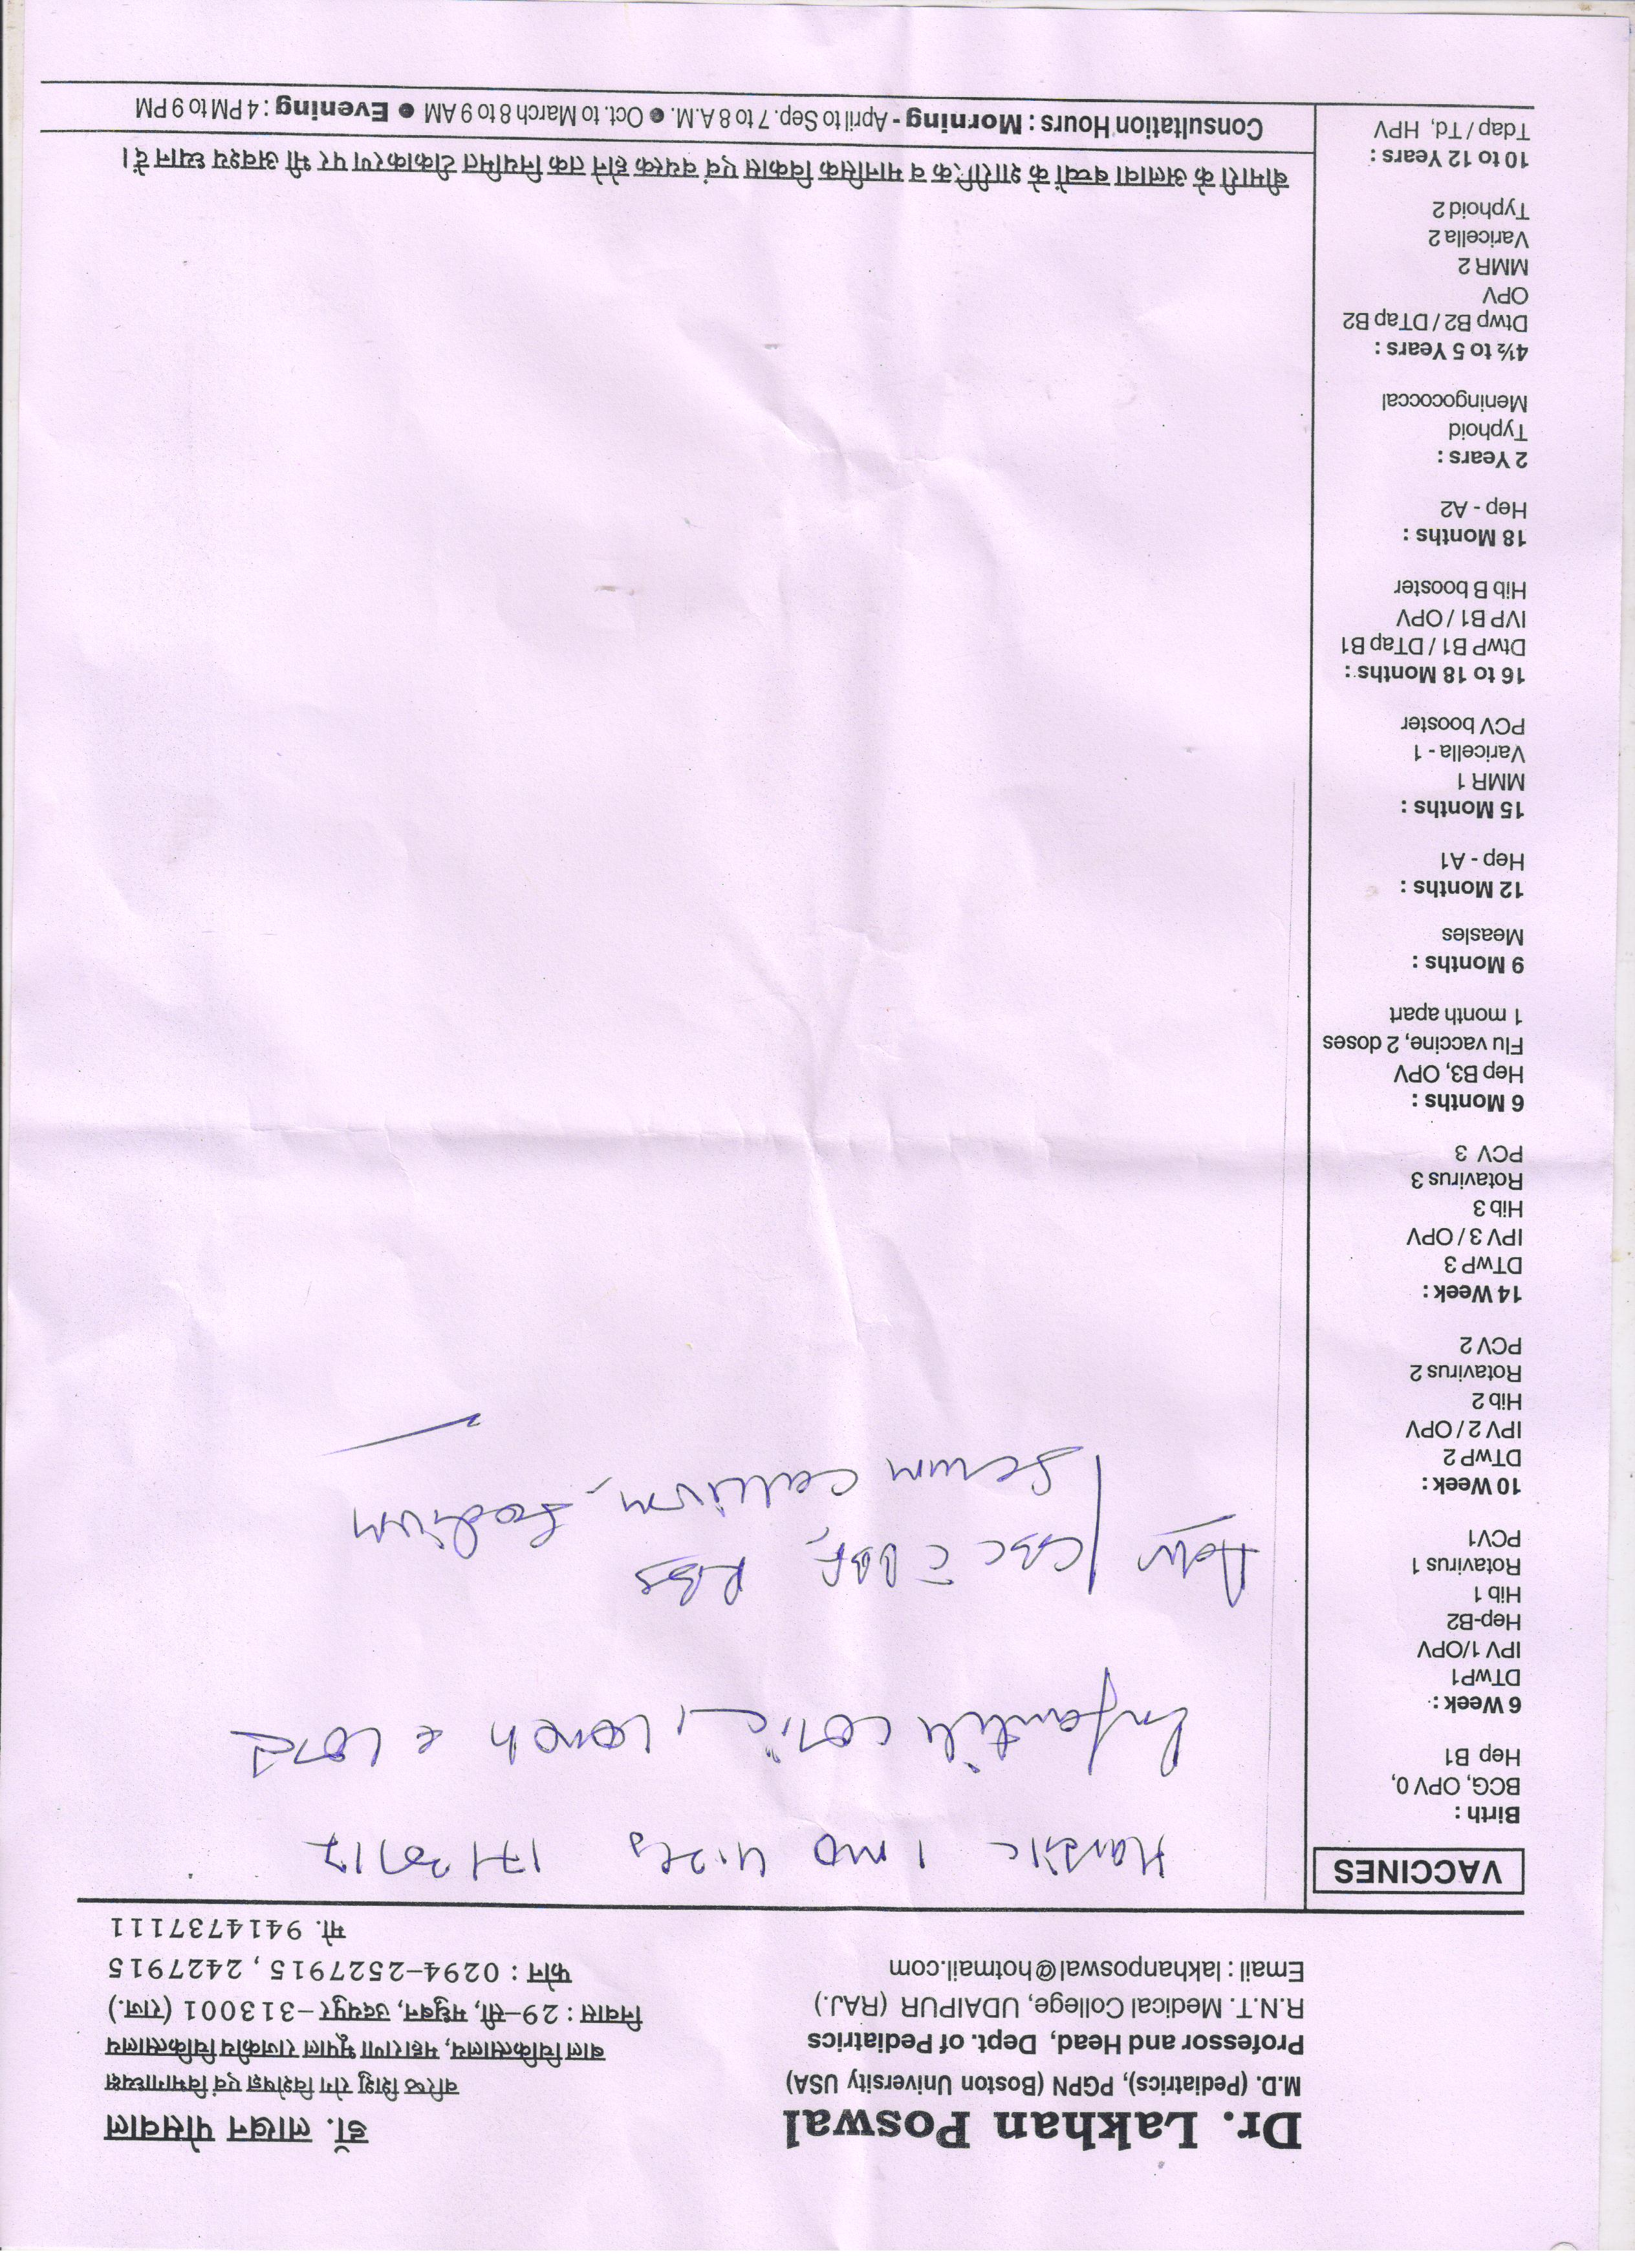 Dr. Lakhan Poswal
M.D. (Pediatrics), PGPN (Boston University USA)
Professor and Head, Dept. of Pediatrics
R.N.T. Medical College, UDAIPUR (RAJ.)
Email : lakhanposwal@hotmail.com
डॉ. लाखन पोसवाल
वरिष्ठ शिशु रोग विशेषज्ञ एवं विभागाध्यक्ष
बाल चिकित्सालय, महाराणा भूपाल राजकीय चिकित्सालय
निवास : 29-सी, मधुबन, उदयपुर-313001 (राज.)
फोन : 0294-2527915, 2427915
मो. 9414737111
VACCINES
Birth :
BCG, OPV 0,
Hep B1
6 Week :
DTwP1
IPV 1/OPV
Hep-B2
Hib 1
Rotavirus 1
PCV1
10 Week :
DTwP 2
IPV 2 / OPV
Hib 2
Rotavirus 2
PCV 2
14 Week :
DTwP 3
IPV 3 / OPV
Hib 3
Rotavirus 3
PCV 3
6 Months :
Hep B3, OPV
Flu vaccine, 2 doses
1 month apart
9 Months :
Measles
12 Months :
Hep - A1
15 Months :
MMR 1
Varicella - 1
PCV booster
16 to 18 Months :
DtwP B1 / DTap B1
IVP B1 / OPV
Hib B booster
18 Months :
Hep - A2
2 Years :
Typhoid
Meningococcal
4½ to 5 Years :
Dtwp B2 / DTap B2
OPV
MMR 2
Varicella 2
Typhoid 2
10 to 12 Years :
Tdap / Td, HPV
Hardik 1 mo
Infantile colic, cough & cold
CBC c̄ PBF, RBS
Serum calcium, Sodium
बीमारी के अलावा बच्चों के शारीरिक व मानसिक विकास एवं वयस्क होने तक नियमित टीकाकरण पर भी अवश्य ध्यान दें।
Consultation Hours : Morning - April to Sep. 7 to 8 A.M. ● Oct. to March 8 to 9 AM ● Evening : 4 PM to 9 PM